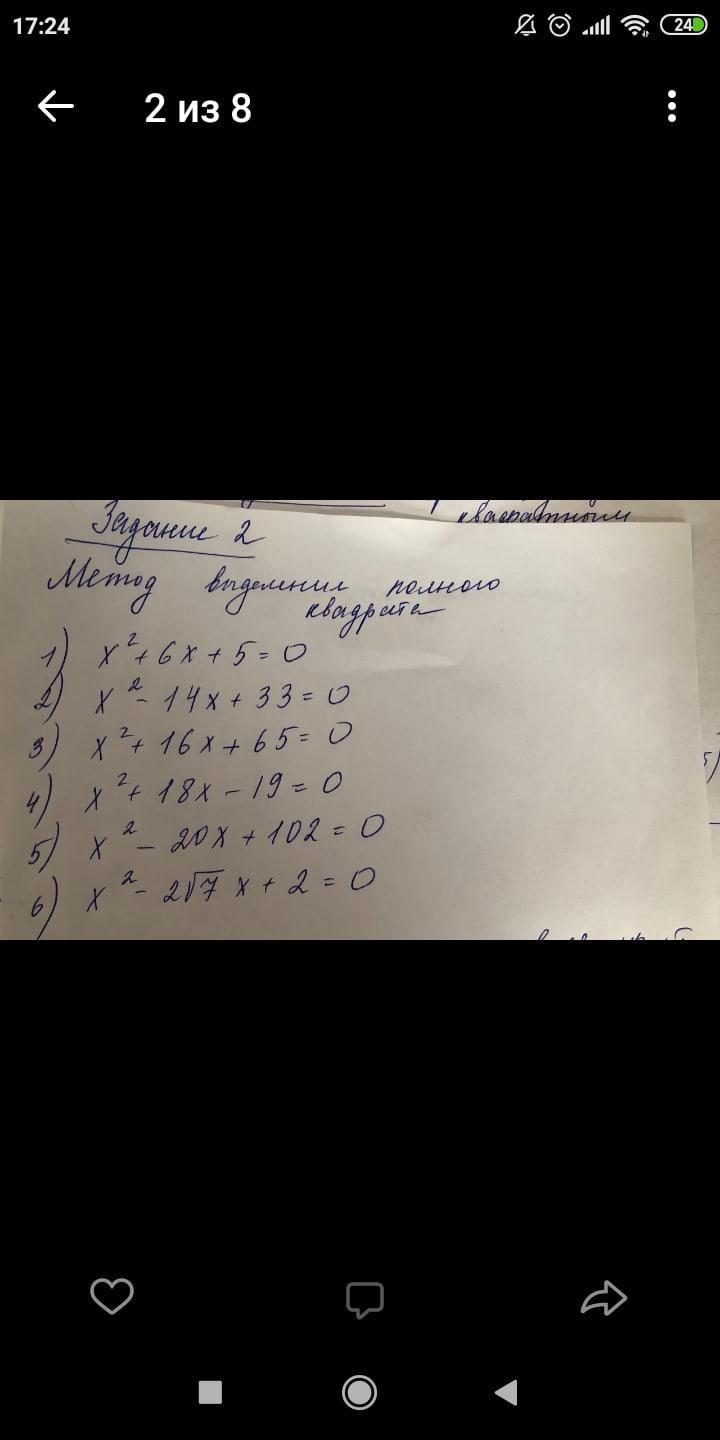 17:24
24
2 из 8
квадратным
Задание 2
Метод выделения полного
квадрата
1) x² + 6x + 5 = 0
2) x² - 14x + 33 = 0
3) x² + 16x + 65 = 0
4) x² + 18x - 19 = 0
5) x² - 20x + 102 = 0
6) x² - 2√7 x + 2 = 0
5)